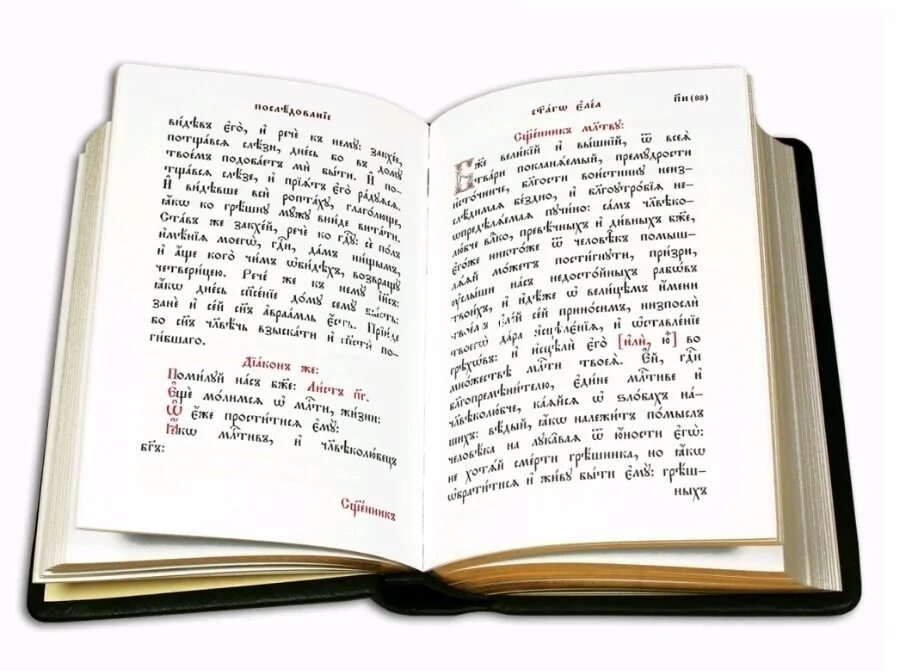 послѣдованіе
видѣвъ є҆го̀, и҆ речѐ къ немꙋ̀: закхе́е,
потща́всѧ слѣ́зи, дне́сь бо въ домꙋ̀
твое́мъ подоба́етъ мѝ бы́ти. И҆ по-
тща́всѧ слѣ́зе, и҆ прїѧ́тъ є҆го̀ ра́дꙋѧсѧ.
И҆ ви́дѣвше всѝ ропта́хꙋ, глаго́люще,
ꙗ҆́кѡ ко грѣ́шнꙋ мꙋ́жꙋ вни́де вита́ти.
Ста́въ же закхе́й, речѐ ко гдⷭ҇ꙋ: сѐ по́лъ
и҆мѣ́нїѧ моегѡ̀, гдⷭ҇и, да́мъ ни́щымъ,
и҆ а҆́ще кого̀ чи́мъ ѡ҆би́дѣхъ, возвращꙋ̀
четвери́цею. Рече́ же къ немꙋ̀ і҆и҃съ:
ꙗ҆́кѡ дне́сь сп҃се́нїе до́мꙋ семꙋ̀ бы́сть:
занѐ и҆ се́й сн҃ъ а҆враа́мль є҆́сть. Прїи́де
бо сн҃ъ чл҃вѣ́чь взыска́ти и҆ сп҃стѝ по-
ги́бшаго.
Дїа́конъ же:
Поми́лꙋй на́съ бж҃е: Ли́стъ п҃г.
Є҆щѐ мо́лимсѧ ѡ҆ млⷭ҇ти, жи́зни:
Ѽ є҆́же прости́тисѧ є҆мꙋ̀:
Ꙗ҆́кѡ млⷭ҇тивъ, и҆ чл҃вѣколю́бецъ
бг҃ъ:
Сщ҃е́нникъ
ст҃а́гѡ є҆ле́а
п҃и (88)
Сщ҃е́нникъ мл҃твꙋ:
Бж҃е вели́кїй и҆ вы́шнїй, ѿ всеѧ̀
тва́ри покланѧ́емый, премꙋ́дрости
и҆сто́чниче, бл҃гости вои́стиннꙋ неиз-
слѣ́димаѧ бе́здно, и҆ бл҃гоꙋтро́бїѧ не-
ѡ҆предѣлѧ́емаѧ пꙋчи́но: са́мъ чл҃вѣко-
лю́бче влⷣко, превѣ́чныхъ и҆ ди́вныхъ бж҃е,
є҆го́же никто́же ѿ человѣ̑къ помыш-
лѧ́ѧй мо́жетъ пости́гнꙋти, при́зри,
ᲂу҆слы́ши на́съ недосто́йныхъ рабѡ́въ
твои́хъ, и҆ и҆дѣ́же ѡ҆ вели́цѣмъ и҆́мени
твое́мъ є҆ле́й се́й прино́симъ, низпослѝ
твоегѡ̀ да́ра и҆сцѣле́нїѧ, и҆ ѡ҆ставле́нїе
грѣхѡ́въ: и҆ и҆сцѣлѝ є҆го̀ [и҆лѝ, ю҆̀] во
мно́жествѣ млⷭ҇ти твоеѧ̀. Є҆́й, гдⷭ҇и
бл҃гопремѣни́телю, є҆ди́не млⷭ҇тиве и҆
чл҃вѣколю́бче, ка́ѧйсѧ ѡ҆ ѕло́бахъ на-
шихъ: вѣ́дый, ꙗ҆́кѡ належи́тъ по́мыслъ
человѣ́ка на лꙋка̑ваѧ ѿ ю҆́ности є҆гѡ̀:
не хотѧ́й сме́рти грѣ́шника, но ꙗ҆́кѡ
ѡ҆брати́тисѧ и҆ жи́вꙋ бы́ти є҆мꙋ̀: грѣ́ш-
ныхъ